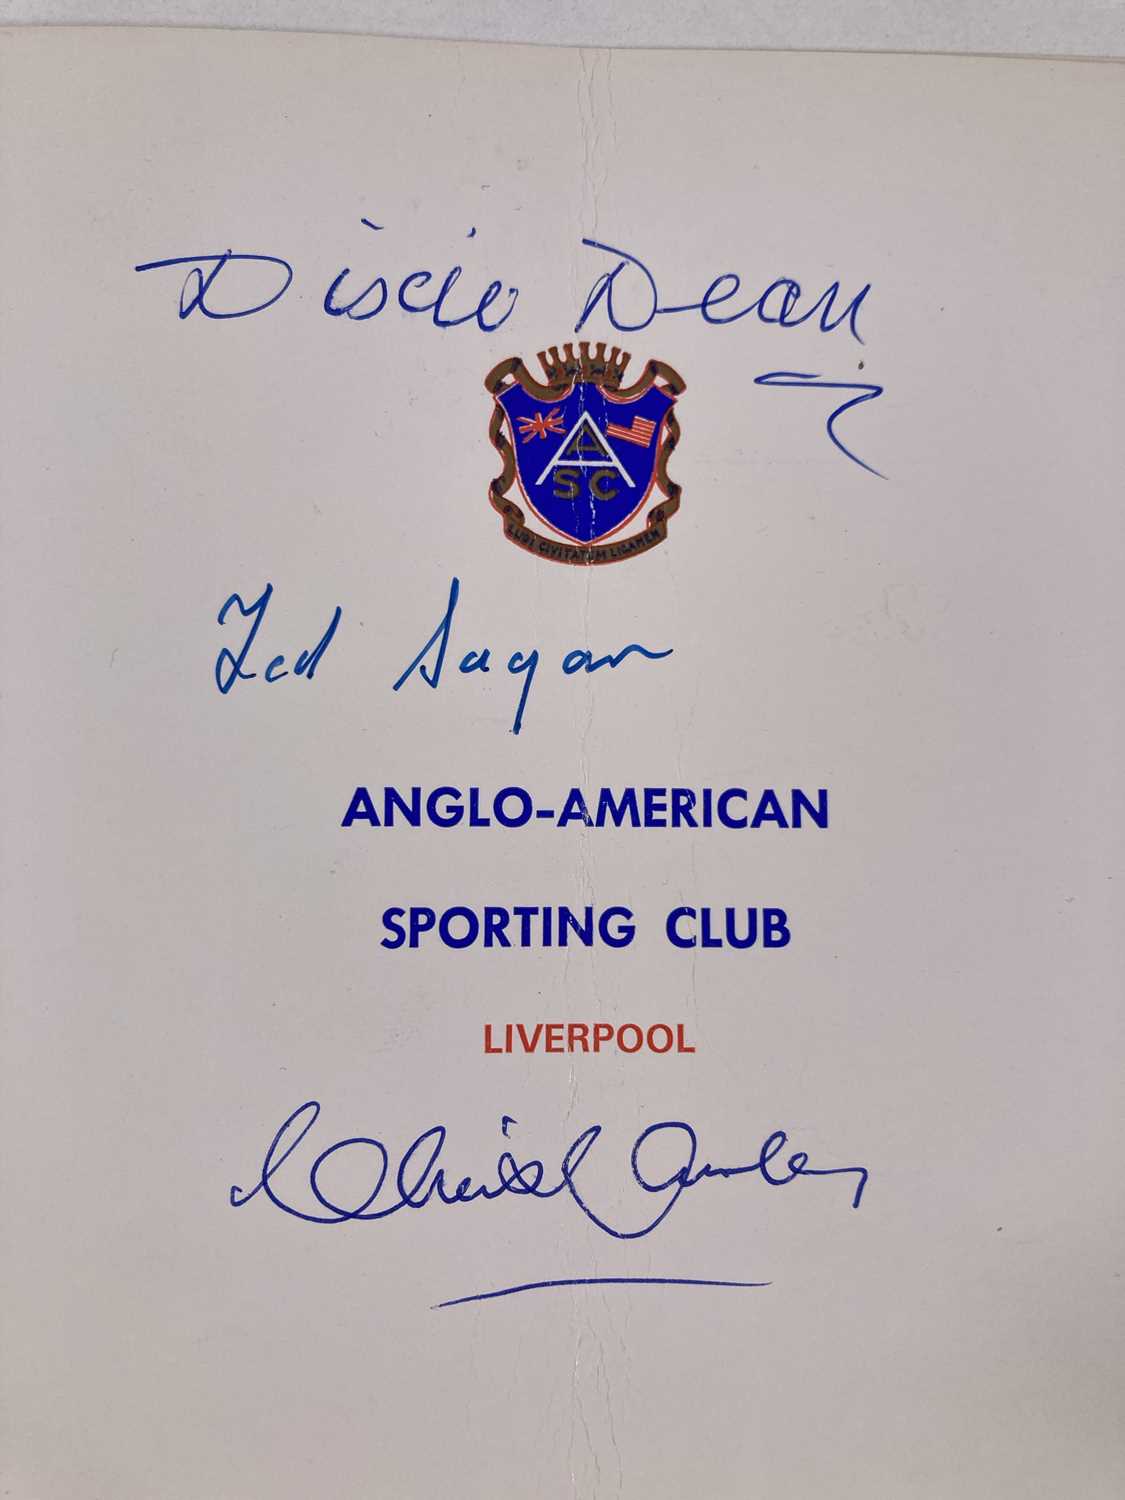 Dixie Dean
A
A
SC
LUDI CIVITATUM LIGAMEN
Ted Sagar
ANGLO-AMERICAN
SPORTING CLUB
LIVERPOOL